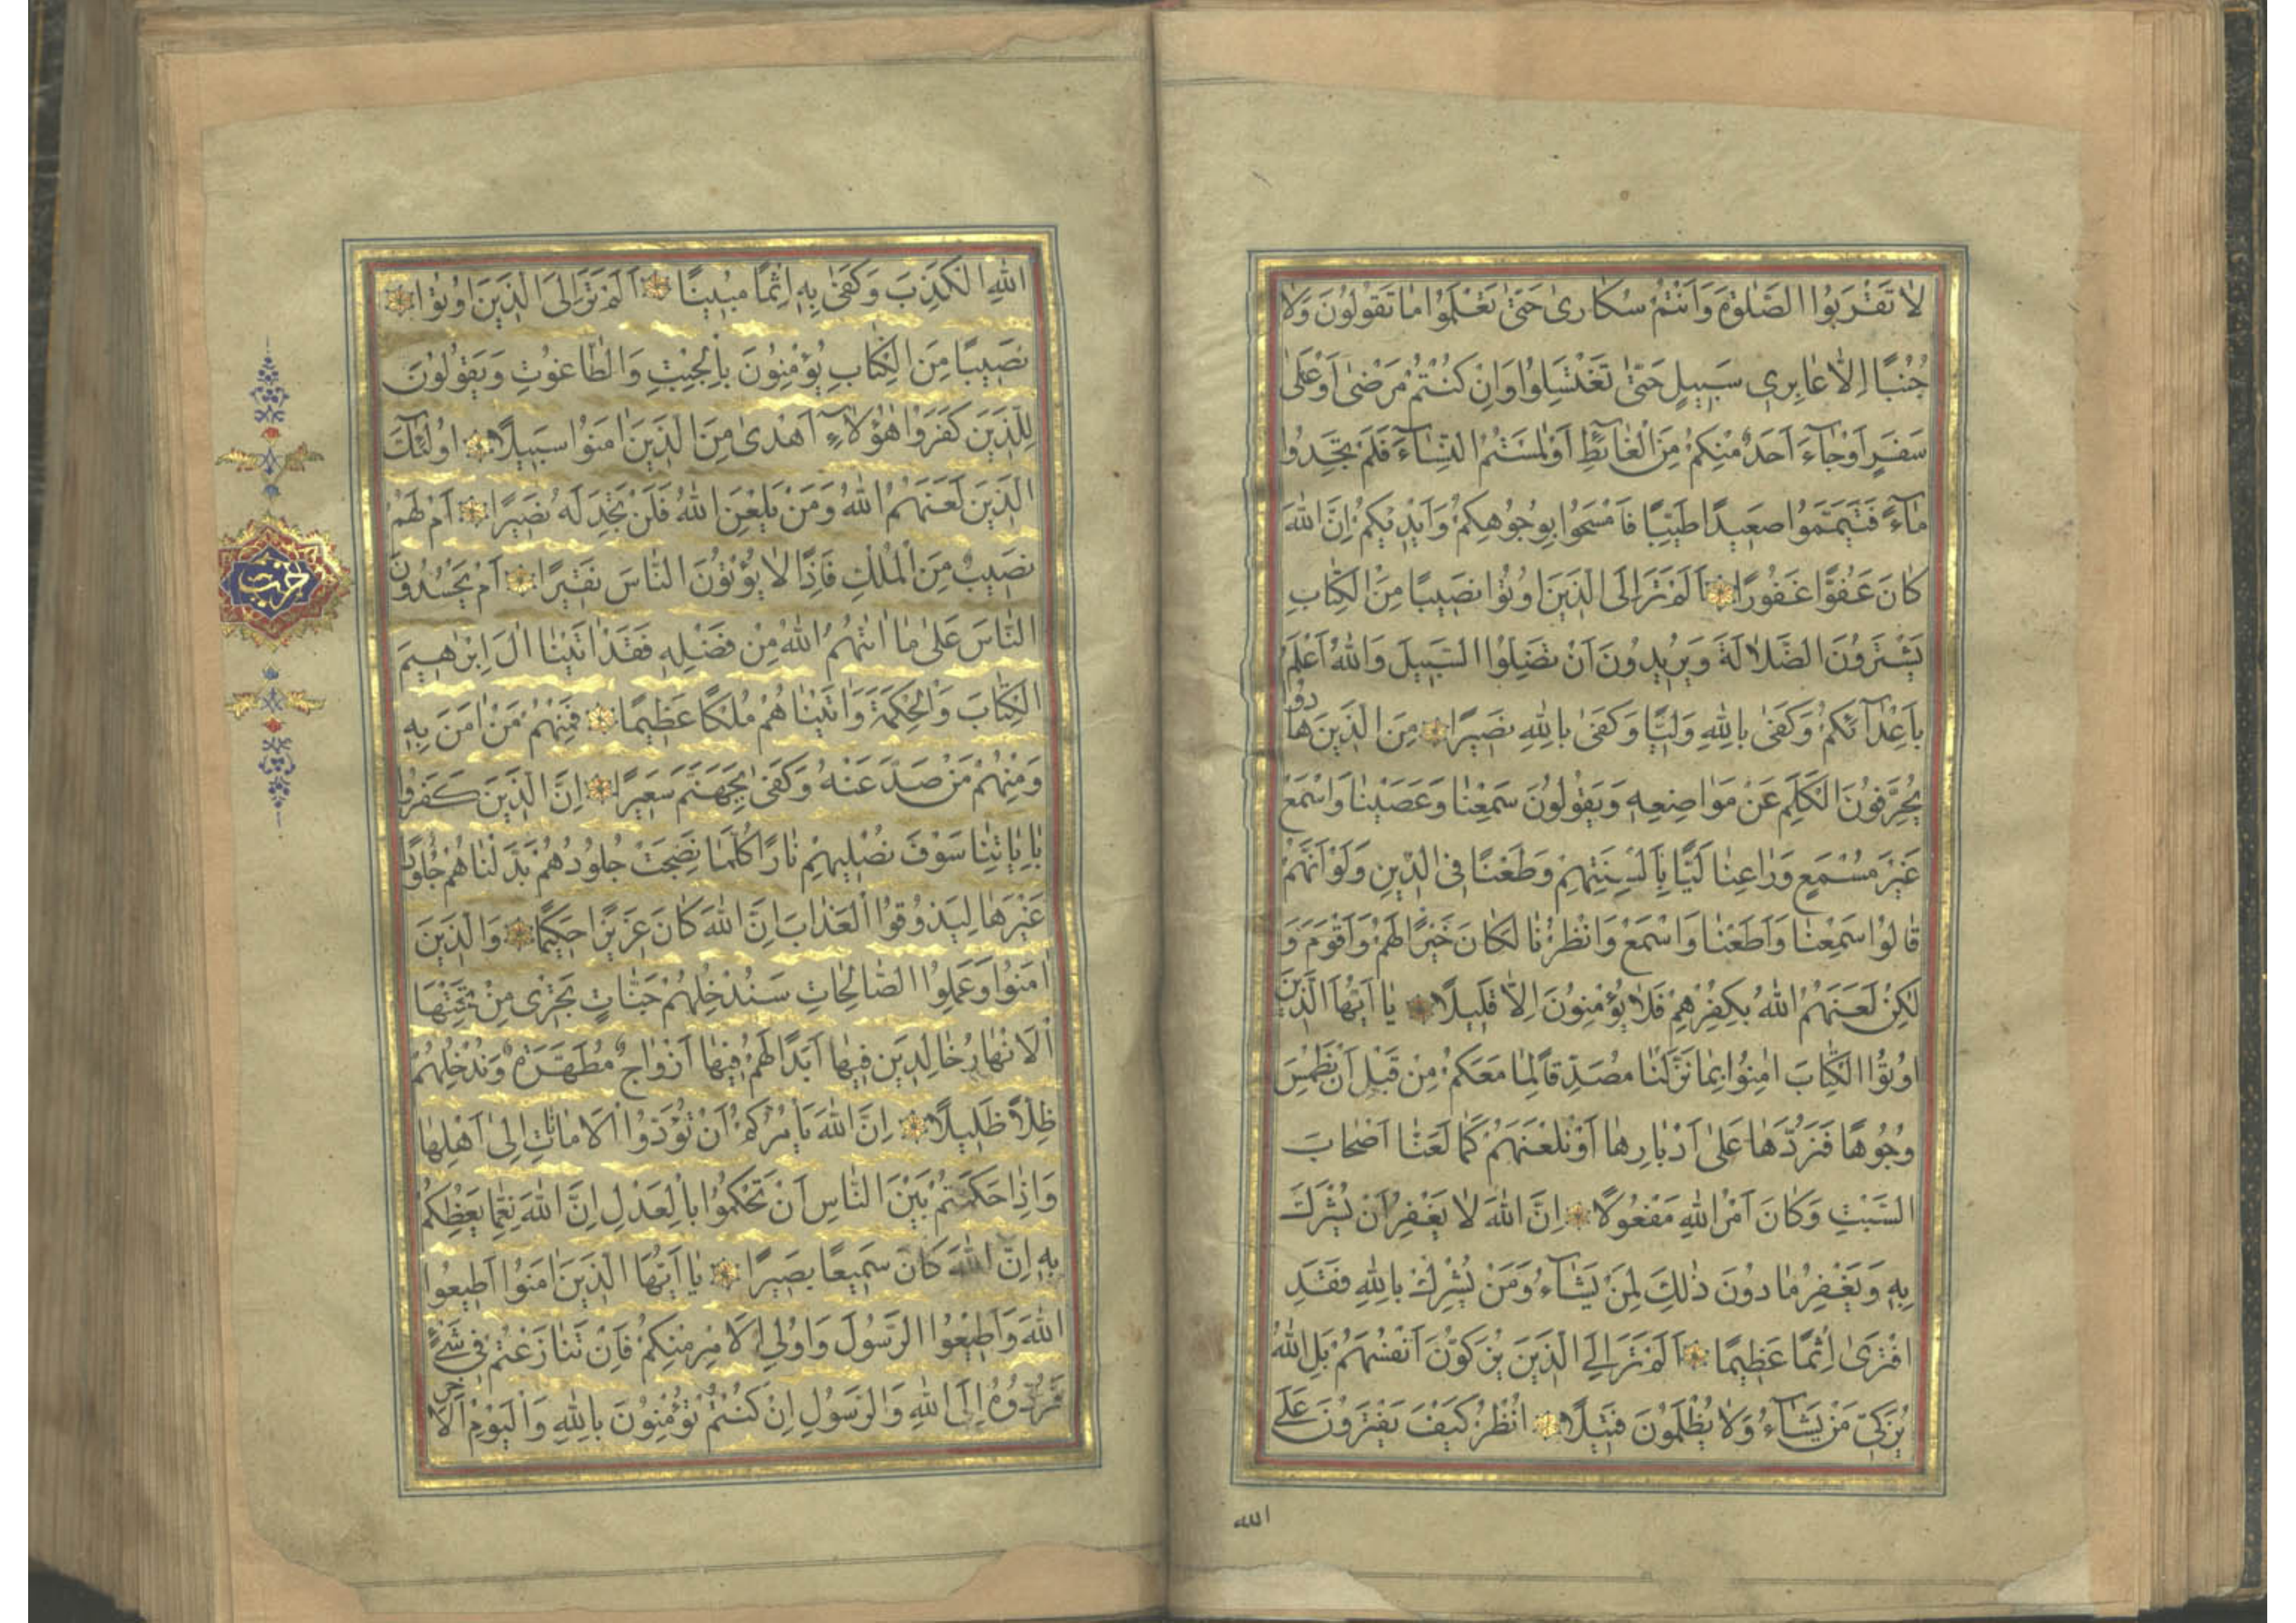 لا تَقْرَبُوا الصَّلٰوةَ وَاَنْتُمْ سُكَارىٰ حَتّٰى تَعْلَمُوا مٰا تَقُولُونَ وَلا
جُنُبًا اِلّا عٰابِرِى سَبِيلٍ حَتّٰى تَغْتَسِلُوا وَاِنْ كُنْتُمْ مَرْضىٰ اَوْ عَلىٰ
سَفَرٍ اَوْ جٰاۤءَ اَحَدٌ مِنْكُمْ مِنَ الْغٰاۤئِطِ اَوْ لٰمَسْتُمُ النِّسٰاۤءَ فَلَمْ تَجِدُوا
مٰاۤءً فَتَيَمَّمُوا صَعِيدًا طَيِّبًا فَامْسَحُوا بِوُجُوهِكُمْ وَاَيْدِيكُمْ اِنَّ اللهَ
كٰانَ عَفُوًّا غَفُورًا اَلَمْ تَرَ اِلَى الَّذِينَ اُوتُوا نَصِيبًا مِنَ الْكِتٰابِ
يَشْتَرُونَ الضَّلالَةَ وَيُرِيدُونَ اَنْ تَضِلُّوا السَّبِيلَ وَاللهُ اَعْلَمُ
بِاَعْدٰاۤئِكُمْ وَكَفىٰ بِاللهِ وَلِيًّا وَكَفىٰ بِاللهِ نَصِيرًا مِنَ الَّذِينَ هٰادُوا
يُحَرِّفُونَ الْكَلِمَ عَنْ مَوٰاضِعِهِ وَيَقُولُونَ سَمِعْنٰا وَعَصَيْنٰا وَاسْمَعْ
غَيْرَ مُسْمَعٍ وَرٰاعِنٰا لَيًّا بِاَلْسِنَتِهِمْ وَطَعْنًا فِى الدِّينِ وَلَوْ اَنَّهُمْ
قٰالُوا سَمِعْنٰا وَاَطَعْنٰا وَاسْمَعْ وَانْظُرْنٰا لَكٰانَ خَيْرًا لَهُمْ وَاَقْوَمَ وَ
لٰكِنْ لَعَنَهُمُ اللهُ بِكُفْرِهِمْ فَلا يُؤْمِنُونَ اِلّا قَلِيلًا يٰا اَيُّهَا الَّذِينَ
اُوتُوا الْكِتٰابَ اٰمِنُوا بِمٰا نَزَّلْنٰا مُصَدِّقًا لِمٰا مَعَكُمْ مِنْ قَبْلِ اَنْ نَطْمِسَ
وُجُوهًا فَنَرُدَّهٰا عَلىٰ اَدْبٰارِهٰا اَوْ نَلْعَنَهُمْ كَمٰا لَعَنّٰا اَصْحٰابَ
السَّبْتِ وَكٰانَ اَمْرُ اللهِ مَفْعُولًا اِنَّ اللهَ لا يَغْفِرُ اَنْ يُشْرَكَ
بِهِ وَيَغْفِرُ مٰا دُونَ ذٰلِكَ لِمَنْ يَشٰاۤءُ وَمَنْ يُشْرِكْ بِاللهِ فَقَدِ
افْتَرىٰ اِثْمًا عَظِيمًا اَلَمْ تَرَ اِلَى الَّذِينَ يُزَكُّونَ اَنْفُسَهُمْ بَلِ اللهُ
يُزَكِّى مَنْ يَشٰاۤءُ وَلا يُظْلَمُونَ فَتِيلًا انْظُرْ كَيْفَ يَفْتَرُونَ عَلَى
الله
اللهِ الْكَذِبَ وَكَفىٰ بِهِ اِثْمًا مُبِينًا اَلَمْ تَرَ اِلَى الَّذِينَ اُوتُوا
نَصِيبًا مِنَ الْكِتٰابِ يُؤْمِنُونَ بِالْجِبْتِ وَالطّٰاغُوتِ وَيَقُولُونَ
لِلَّذِينَ كَفَرُوا هٰؤُلاۤءِ اَهْدىٰ مِنَ الَّذِينَ اٰمَنُوا سَبِيلًا اُولٰئِكَ
الَّذِينَ لَعَنَهُمُ اللهُ وَمَنْ يَلْعَنِ اللهُ فَلَنْ تَجِدَ لَهُ نَصِيرًا اَمْ لَهُمْ
نَصِيبٌ مِنَ الْمُلْكِ فَاِذًا لا يُؤْتُونَ النّٰاسَ نَقِيرًا اَمْ يَحْسُدُونَ
النّٰاسَ عَلىٰ مٰا اٰتٰيهُمُ اللهُ مِنْ فَضْلِهِ فَقَدْ اٰتَيْنٰا اٰلَ اِبْرٰهِيمَ
الْكِتٰابَ وَالْحِكْمَةَ وَاٰتَيْنٰاهُمْ مُلْكًا عَظِيمًا فَمِنْهُمْ مَنْ اٰمَنَ بِهِ
وَمِنْهُمْ مَنْ صَدَّ عَنْهُ وَكَفىٰ بِجَهَنَّمَ سَعِيرًا اِنَّ الَّذِينَ كَفَرُوا
بِاٰيٰاتِنٰا سَوْفَ نُصْلِيهِمْ نٰارًا كُلَّمٰا نَضِجَتْ جُلُودُهُمْ بَدَّلْنٰاهُمْ جُلُودًا
غَيْرَهٰا لِيَذُوقُوا الْعَذٰابَ اِنَّ اللهَ كٰانَ عَزِيزًا حَكِيمًا وَالَّذِينَ
اٰمَنُوا وَعَمِلُوا الصّٰالِحٰاتِ سَنُدْخِلُهُمْ جَنّٰاتٍ تَجْرِى مِنْ تَحْتِهَا
الْاَنْهٰارُ خٰالِدِينَ فِيهٰا اَبَدًا لَهُمْ فِيهٰا اَزْوٰاجٌ مُطَهَّرَةٌ وَنُدْخِلُهُمْ
ظِلًّا ظَلِيلًا اِنَّ اللهَ يَأْمُرُكُمْ اَنْ تُؤَدُّوا الْاَمٰانٰاتِ اِلىٰ اَهْلِهٰا
وَاِذٰا حَكَمْتُمْ بَيْنَ النّٰاسِ اَنْ تَحْكُمُوا بِالْعَدْلِ اِنَّ اللهَ نِعِمّٰا يَعِظُكُمْ
بِهِ اِنَّ اللهَ كٰانَ سَمِيعًا بَصِيرًا يٰا اَيُّهَا الَّذِينَ اٰمَنُوا اَطِيعُوا
اللهَ وَاَطِيعُوا الرَّسُولَ وَاُولِى الْاَمْرِ مِنْكُمْ فَاِنْ تَنٰازَعْتُمْ فِى شَىْءٍ
فَرُدُّوهُ اِلَى اللهِ وَالرَّسُولِ اِنْ كُنْتُمْ تُؤْمِنُونَ بِاللهِ وَالْيَوْمِ الْاٰخِرِ
حزب